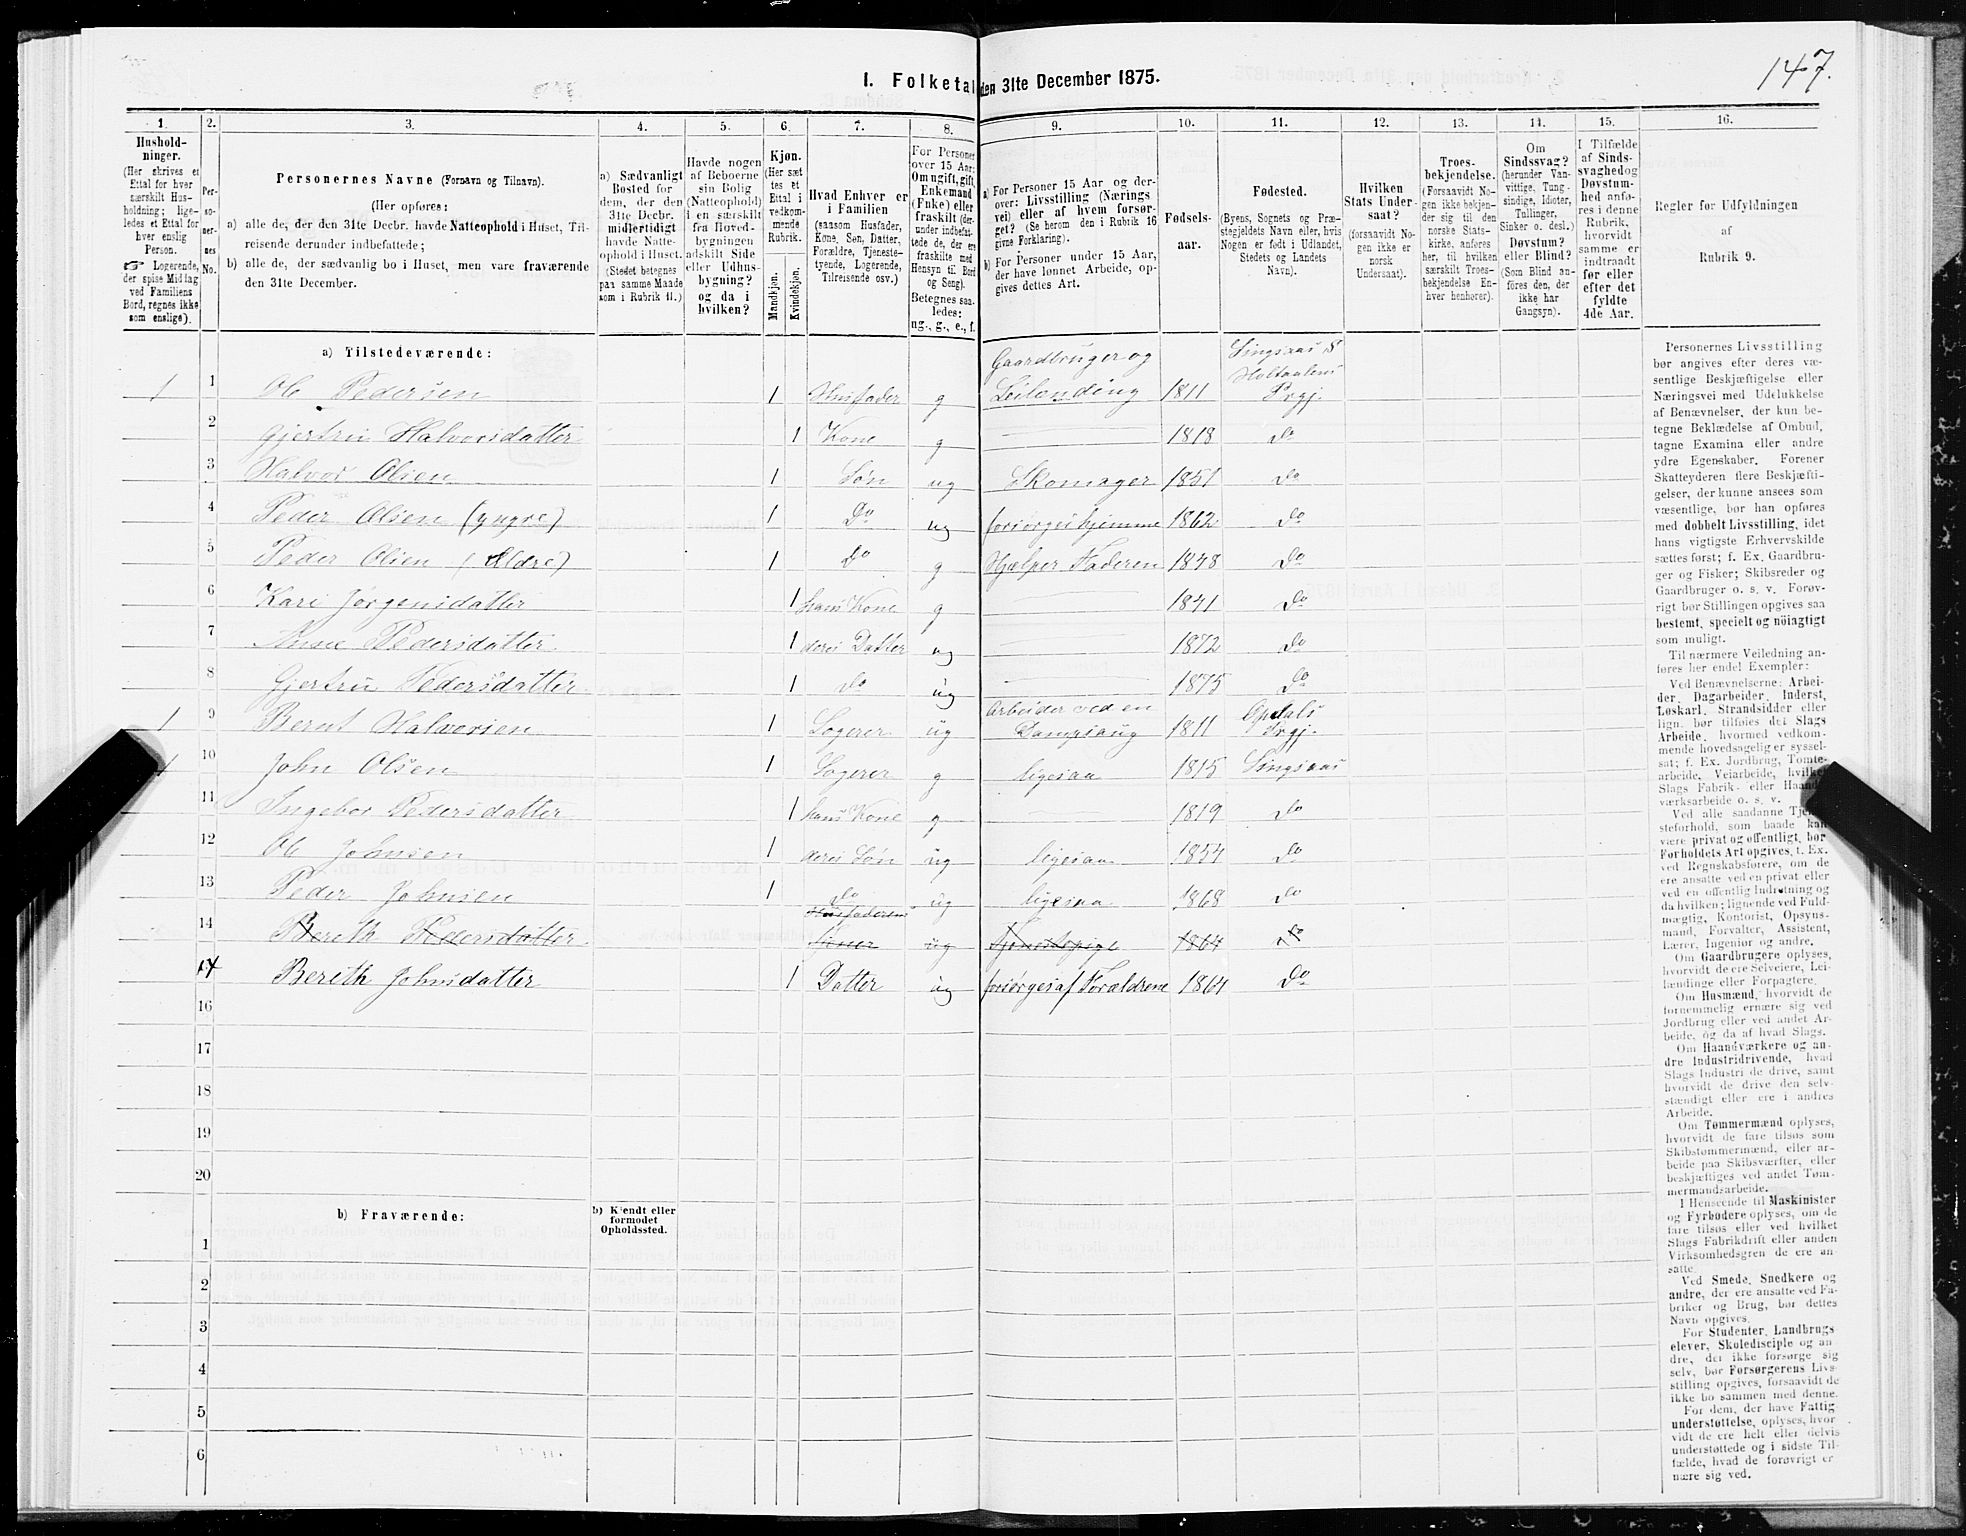 147.
I. Folketal den 31te December 1875.
1. 2. 3. 4. 5. 6. 7. 8. 9. 10. 11. 12. 13. 14. 15. 16.
Hushold-
ninger.
(Her skrives et
Ettal for hver
særskilt Hus-
holdning; lige-
ledes et Ettal for
hver enslig
Person.
☞ Logerende,
der spise Middag
ved Familiens
Bord, regnes ikke
som enslige).
Per-
so-
ner-
nes
No.
Personernes Navne (Fornavn og Tilnavn).
(Her opføres:
a) alle de, der den 31te Decbr. havde Natteophold i Huset, Til-
reisende derunder indbefattede;
b) alle de, der sædvanlig bo i Huset, men vare fraværende
den 31te December.
a) Sædvanligt
Bosted for
dem, der den
31te Decbr.
midlertidigt
havde Natte-
ophold i Huset.
(Stedet betegnes
paa samme Maade
som i Rubrik 11.)
Havde nogen
af Beboerne
sin Bolig
(Natteophold)
i en særskilt
fra Hoved-
bygningen
adskilt Side
eller Udhus-
bygning?
og da i
hvilken?
Kjøn.
(Her sæt-
tes et
Ettal i
vedkom-
mende
Rubrik.
Mandkjøn.
Kvindekjøn.
Hvad Enhver er
i Familien
(saasom Husfader,
Kone, Søn, Datter,
Forældre, Tjeneste-
tyende, Logerende,
Tilreisende osv.)
For Personer
over 15 Aar:
Om ugift, gift,
Enkemand
(Enke) eller
fraskilt (der-
under indbefat-
tede de, der ere
fraskilte med
Hensyn til Bord
og Seng).
Betegnes saa-
ledes:
ug., g., e., f.
a) For Personer 15 Aar og der-
over: Livsstilling (Nærings-
vei) eller af hvem forsør-
get? (Se herom den i Rubrik 16
givne Forklaring).
b) For Personer under 15 Aar,
der have lønnet Arbeide, op-
gives dettes Art.
Fødsels-
aar.
Fødested.
(Byens, Sognets og Præ-
stegjeldets Navn eller, hvis
Nogen er født i Udlandet,
Stedets og Landets
Navn).
Hvilken
Stats Under-
saat?
(forsaavidt No-
gen ikke er
norsk
Undersaat).
Troes-
bekjendelse.
(Forsaavidt No-
gen ikke bekjen-
der sig til den
norske Stats-
kirke, anføres
her, til hvilken
særskilt Troes-
bekjendelse En-
hver henhører).
Om
Sindssvag?
(herunder Van-
vittige, Tung-
sindige, Idioter,
Tullinger,
Sinker o. desl.)
Døvstum?
eller Blind?
(Som Blind an-
føres den, der
ikke har
Gangsyn).
I Tilfælde
af Sinds-
svaghed og
Døvstum-
hed anfø-
res i denne
Rubrik,
hvorvidt
samme er
indtraadt
før eller
efter det
fyldte
4de Aar.
Regler for Udfyldningen
af
Rubrik 9.
a) Tilstedeværende:
1 1 Ole Pedersen 1 Husfader g Gaardbruger og Leilending 1811 Singsaas S Holtaalens Prgj.
2 Gjertru Halvorsdatter 1 Kone g 1818 Do
3 Halvor Olsen 1 Søn ug Skomager 1851 Do
4 Peder Olsen (yngre) 1 Do ug forsørges hjemme 1862 Do
5 Peder Olsen (Eldre) 1 Do g Hjælper Faderen 1848 Do
6 Kari Jørgensdatter 1 hans Kone g 1841 Do
7 Pedersdatter 1 deres Datter ug 1872 Do
8 Gjertru Pedersdatter 1 Do ug 1875 Do
1 9 Bernt Halvorsen 1 Logerer ug Arbeider ved en Dampsaug 1811 Opdals Prgj.
1 10 John Olsen 1 Logerer g ligesaa 1815 Singsaas
11 Ingebor Pedersdatter 1 hans Kone g 1819 Do
12 Ole Johnsen 1 deres Søn ug ligesaa 1854 Do
13 Peder Johnsen 1 Do ug ligesaa 1868 Do
14 Bereth Pedersdatter Husfaderens tjener ug Tjenestepige 1864 Do
14 Bereth Johnsdatter 1 Datter ug forsørges af Forældrene 1864 Do
16
17
18
19
20
b) Fraværende:
b) Kjendt eller
formodet
Opholdssted.
1
2
3
4
5
6
Personernes Livsstilling
bør angives efter deres væ-
sentlige Beskjæftigelse eller
Næringsvei med Udelukkelse
af Benævnelser, der kun be-
tegne Beklædelse af Ombud,
tagne Examina eller andre
ydre Egenskaber. Forener
Skatteyderen flere Beskjæfti-
gelser, der kunne ansees som
væsentlige, bør han opføres
med dobbelt Livsstilling, idet
hans vigtigste Erhvervskilde
sættes først; f. Ex. Gaardbru-
ger og Fisker; Skibsreder og
Gaardbruger o. s. v. Forøv-
rigt bør Stillingen opgives saa
bestemt, specielt og nöiagtigt
som muligt.
Til nærmere Veiledning an-
føres her endel Exempler:
Ved Benævnelserne: Arbei-
der, Dagarbeider, Inderst,
Løskarl, Strandsidder eller
lign. bør tilføies det Slags
Arbeide, hvormed vedkom-
mende hovedsagelig er syssel-
sat; f. Ex. Jordbrug, Tomte-
arbeide, Veiarbeide, hvilket
Slags Fabrik- eller Haand-
værksarbeide o. s. v.
Ved alle saadanne Tjene-
steforhold, som baade kan
være privat og offentligt, bør
Forholdets Art opgives, t. Ex.
ved Regnskabsførere, om de
ere ansatte ved en privat eller
ved en offentlig Indretning og
da hvilken; lignende ved Fuld-
mægtig, Kontorist, Opsyns-
mand, Forvalter, Assistent,
Lærer, Ingeniør og andre.
Om Gaardbrugere oplyses,
hvorvidt de ere Selveiere, Lei-
lændinge eller Forpagtere.
Om Husmænd, hvorvidt de
fornemmelig ernære sig ved
Jordbrug eller ved andet Ar-
beide, og da af hvad Slags.
Om Haandværkere og an-
dre Industridrivende, hvad
Slags Industri de drive, samt
hvorvidt de drive den selv-
stændigt eller ere i andres
Arbeide.
Om Tømmermænd oplyses,
hvorvidt de fare tilsøs som
Skibstømmermænd, eller ar-
beide paa Skibsværfter, eller
beskjæftiges ved andet Tøm-
mermandsarbeide.
I Henseende til Maskinister
og Fyrbødere oplyses, om de
fare tilsøs eller ved hvilket
Slags Fabrikdrift eller anden
Virksomhedsgren de ere an-
satte.
Ved Smede, Snedkere og
andre, der ere ansatte ved Fa-
briker og Brug, bør dettes
Navn opgives.
For Studenter, Landbrugs-
elever, Skoledisciple og an-
dre, det ikke forsørge sig
selv, bør Forsørgerens Livs-
stilling opgives, forsaavidt de
ikke bo sammen med denne.
For dem, der have Fattig-
understøttelse, oplyses, hvor-
vidt de ere helt eller delvis
understøttede og i sidste Til-
fælde, hvad de forøvrigt er-
nære sig ved.